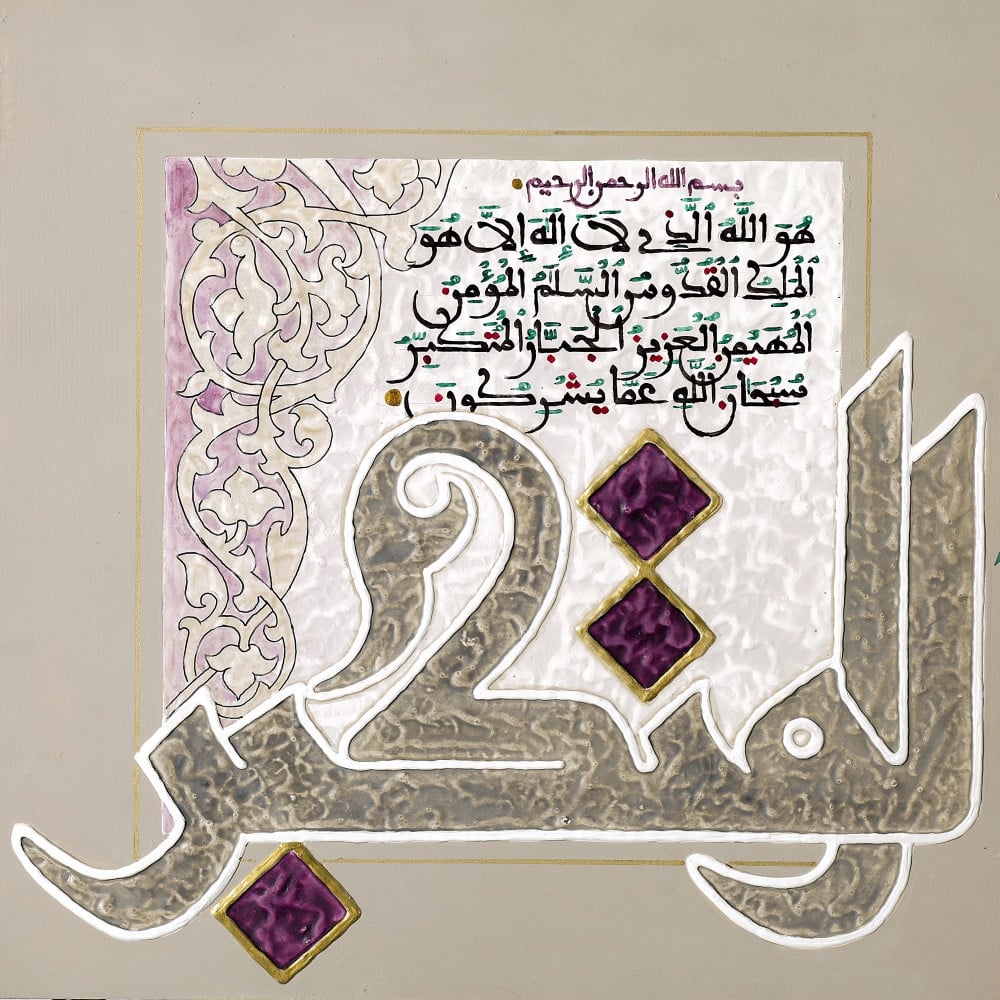 بسم الله الرحمن الرحيم
هُوَ اللَّهُ الَّذِي لَا إِلَهَ إِلَّا هُوَ
الْمَلِكُ الْقُدُّوسُ السَّلَمُ الْمُؤْمِنُ
الْمُهَيْمِنُ الْعَزِيزُ الْجَبَّارُ الْمُتَكَبِّرُ
سُبْحَانَ اللَّهِ عَمَّا يُشْرِكُونَ
المتكبر